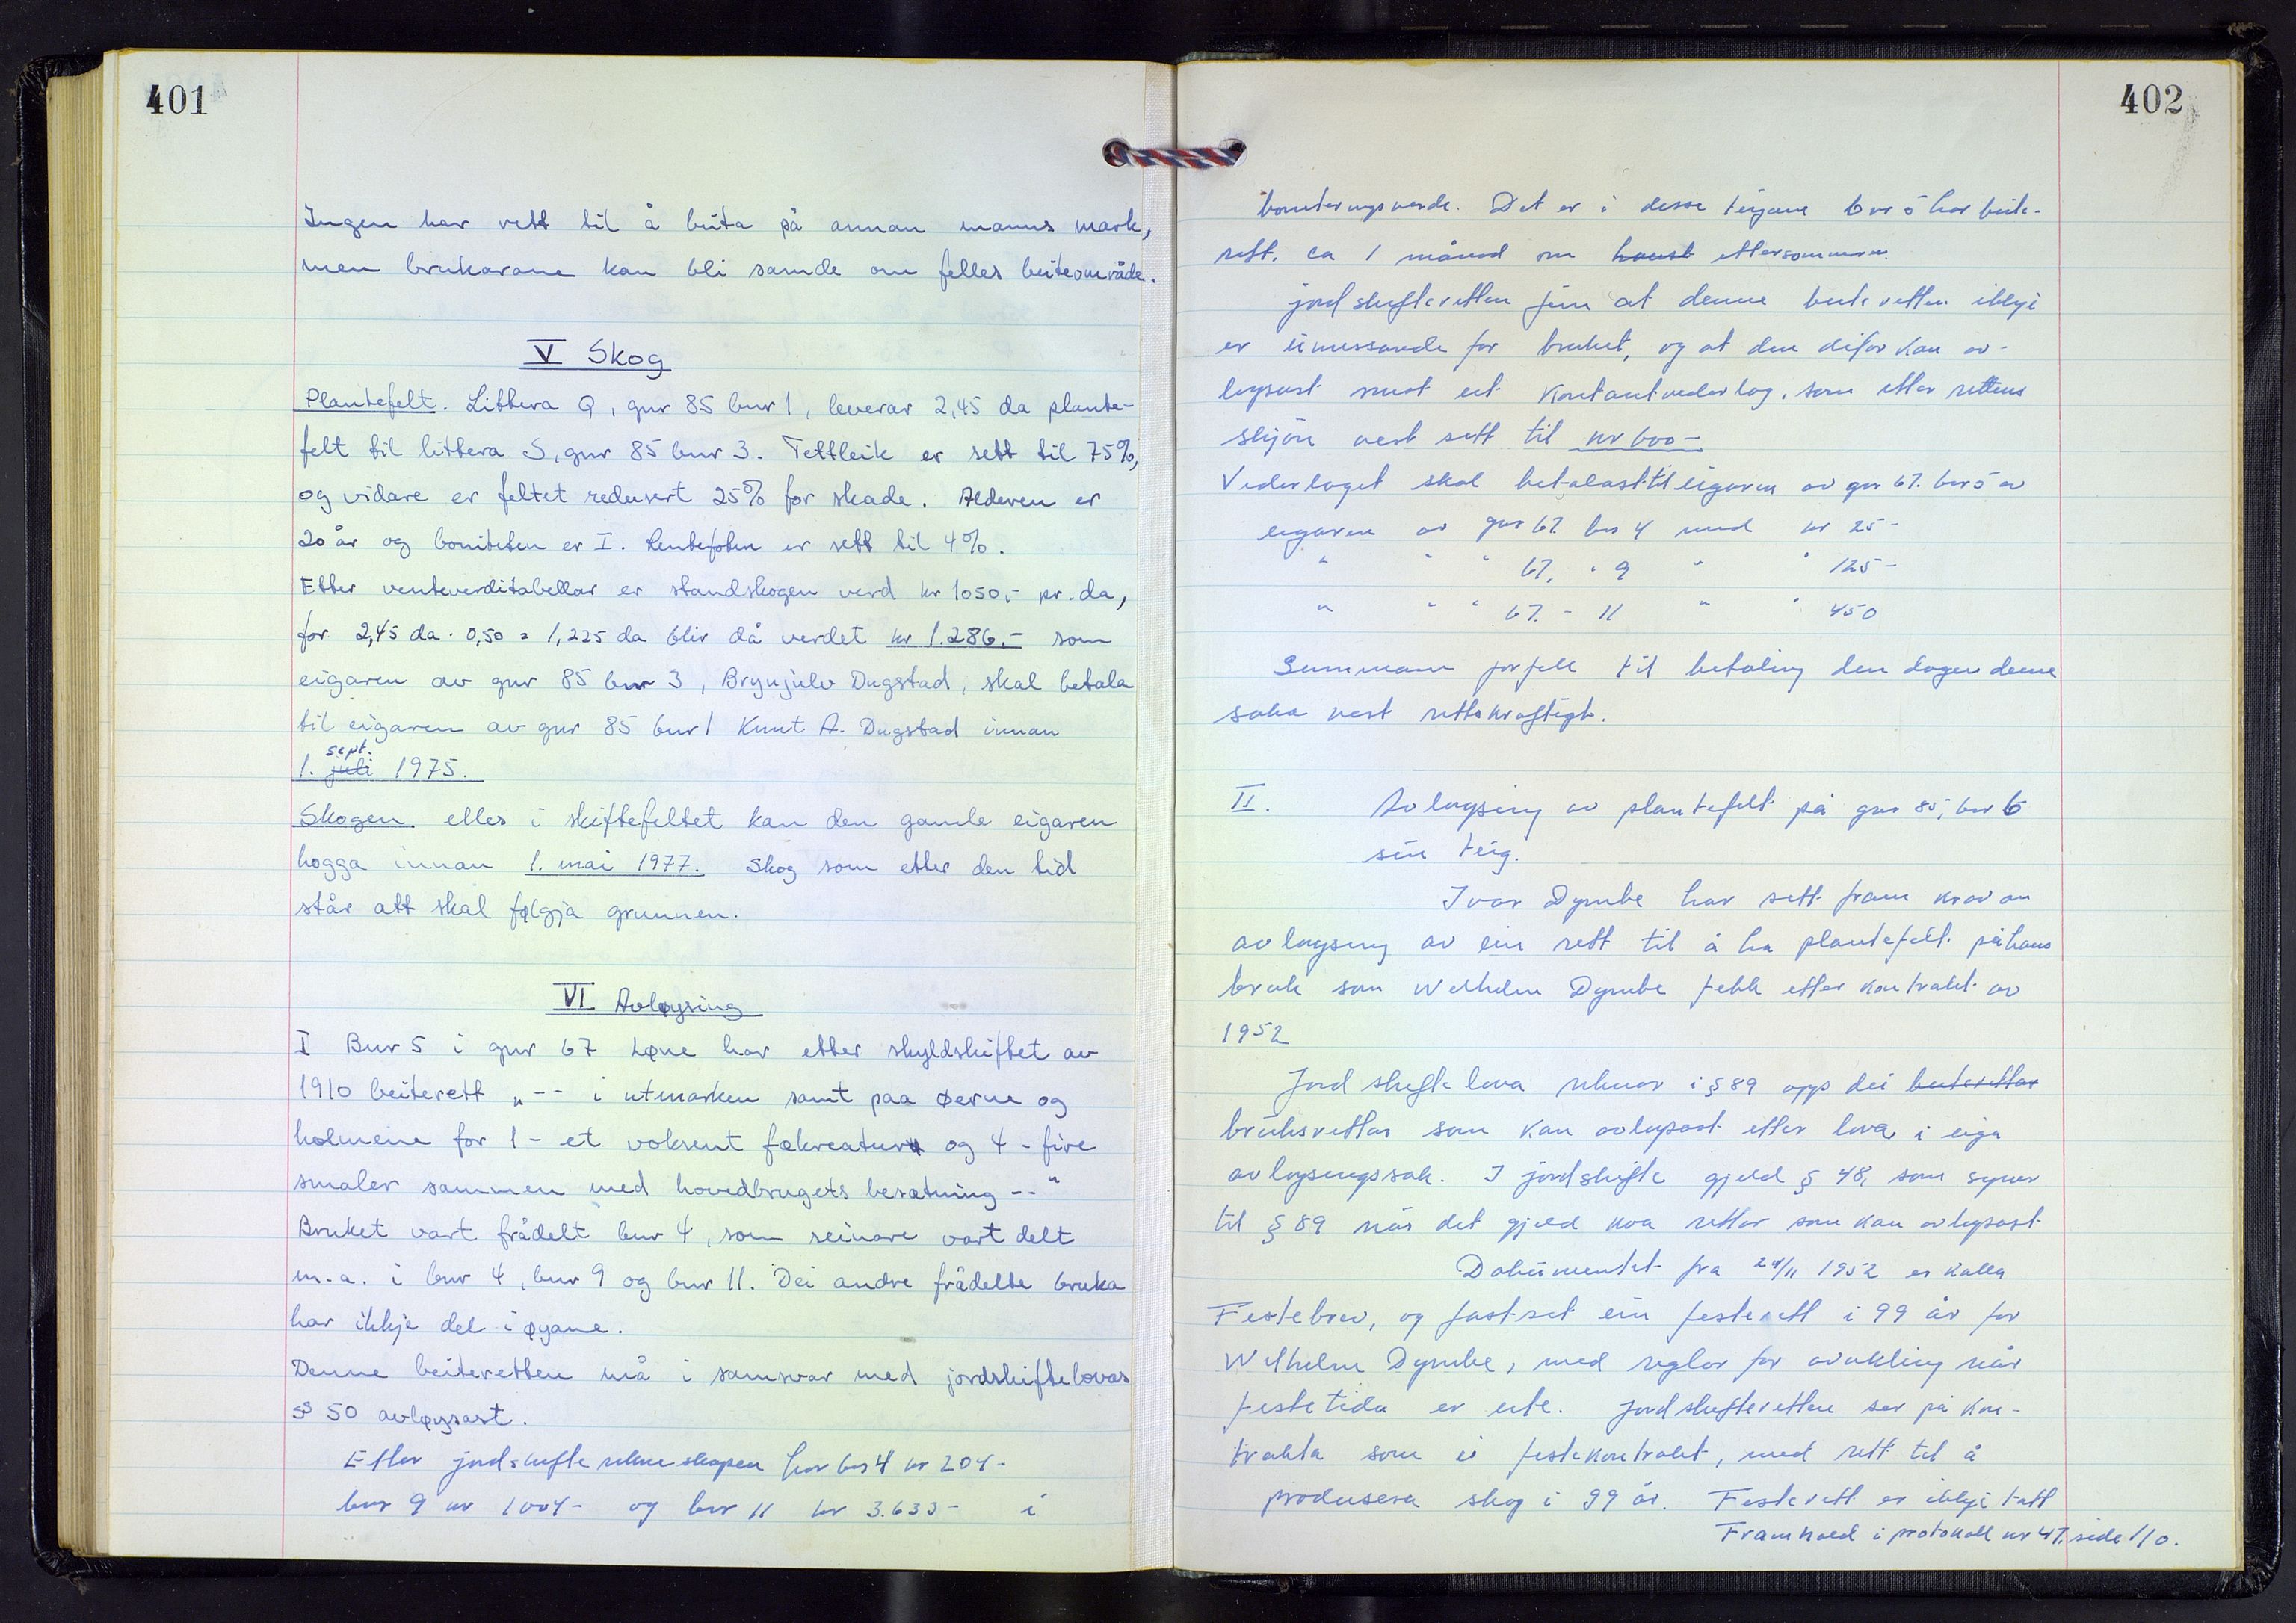 401
Ingen har rett til å beita på annan manns mark,
men brukarane kan bli samde om felles beiteområde.
V Skog
Plantefelt. Littera Q, gnr 85 bnr 1, leverar 2,45 da plante-
felt til littera S, gnr 85 bnr 3. Tettleik er sett til 75%,
og vidare er feltet redusert 25% for skade. Alderen er
20 år og boniteten er I. Rentefoten er sett til 4%.
Etter venteverditabellar er standskogen verd kr 1050,- pr. da,
for 2,45 da · 0,50 = 1,225 da blir då verdet kr 1.286.- som
eigaren av gnr 85 bnr 3, Brynjulv Dugstad, skal betala
til eigaren av gnr 85 bnr 1 Knut A. Dugstad innan
sept.
1. juli 1975.
Skogen elles i skiftefeltet kan den gamle eigaren
hogga innan 1. mai 1977. Skog som etter den tid
står att skal følgja grunnen.
VI Avløysing
I Bnr 5 i gnr 67 Løne har etter skyldskiftet av
1910 beiterett „-- i utmarken samt paa øerne og
holmene for 1 - et voksent fækreatur og 4 - fire
smaler sammen med hovedbrugets besætning --"
Bruket vart frådelt bnr 4, som seinare vart delt
m.a. i bnr 4, bnr 9 og bnr 11. Dei andre frådelte bruka
har ikkje del i øyane.
Denne beiteretten må i samsvar med jordskiftelovas
§ 50 avløysast.
Etter jordskifterekneskapen har bnr 4 kr 204-
bnr 9 kr 1004- og bnr 11 kr 3.633- i
402
boniteringsverde. Det er i desse teigane bnr 5 har beite-
rett, ca 1 månad om haust ettersommaren.
Jordskifteretten finn at denne beiteretten ikkje
er einessande for bruket, og at den difor kan av-
løysast mot eit kontantvederlag, som etter rettens
skjøn vert sett til kr 600-
Vederlaget skal betalast til eigaren av gnr 67. bnr 5 av
eigaren av gnr 67 bnr 4 med kr 25-
" " " 67, " 9 " " 125-
" " " 67 - 11 " " 450
Summane forfell til betaling den dagen denne
saka vert rettskraftigt.
II. Avløysing av plantefelt på gnr 85, bnr 6
sin teig.
Ivar Dymbe har sett fram krav om
avløysing av ein rett til å ha plantefelt på hans
bruk som Wilhelm Dymbe fekk etter kontrakt av
1952
Jordskiftelova reknar i § 89 opp dei beiterettar
bruksrettar som kan avløysast etter lova, i eiga
avløysingssak. I jordskifte gjeld § 48, som syner
til § 89 når det gjeld kva rettar som kan avløysast
Dokumentet fra 24/11 1952 er kalla
Festebrev, og fastset ein festerett i 99 år for
Wilhelm Dymbe, med reglar for avvikling når
festetida er ute. Jordskifteretten ser på kon-
trakta som ei festekontrakt, med rett til å
produsera skog i 99 år. Festerett er ikkje tatt
Framhald i protokoll nr 47, side 110.